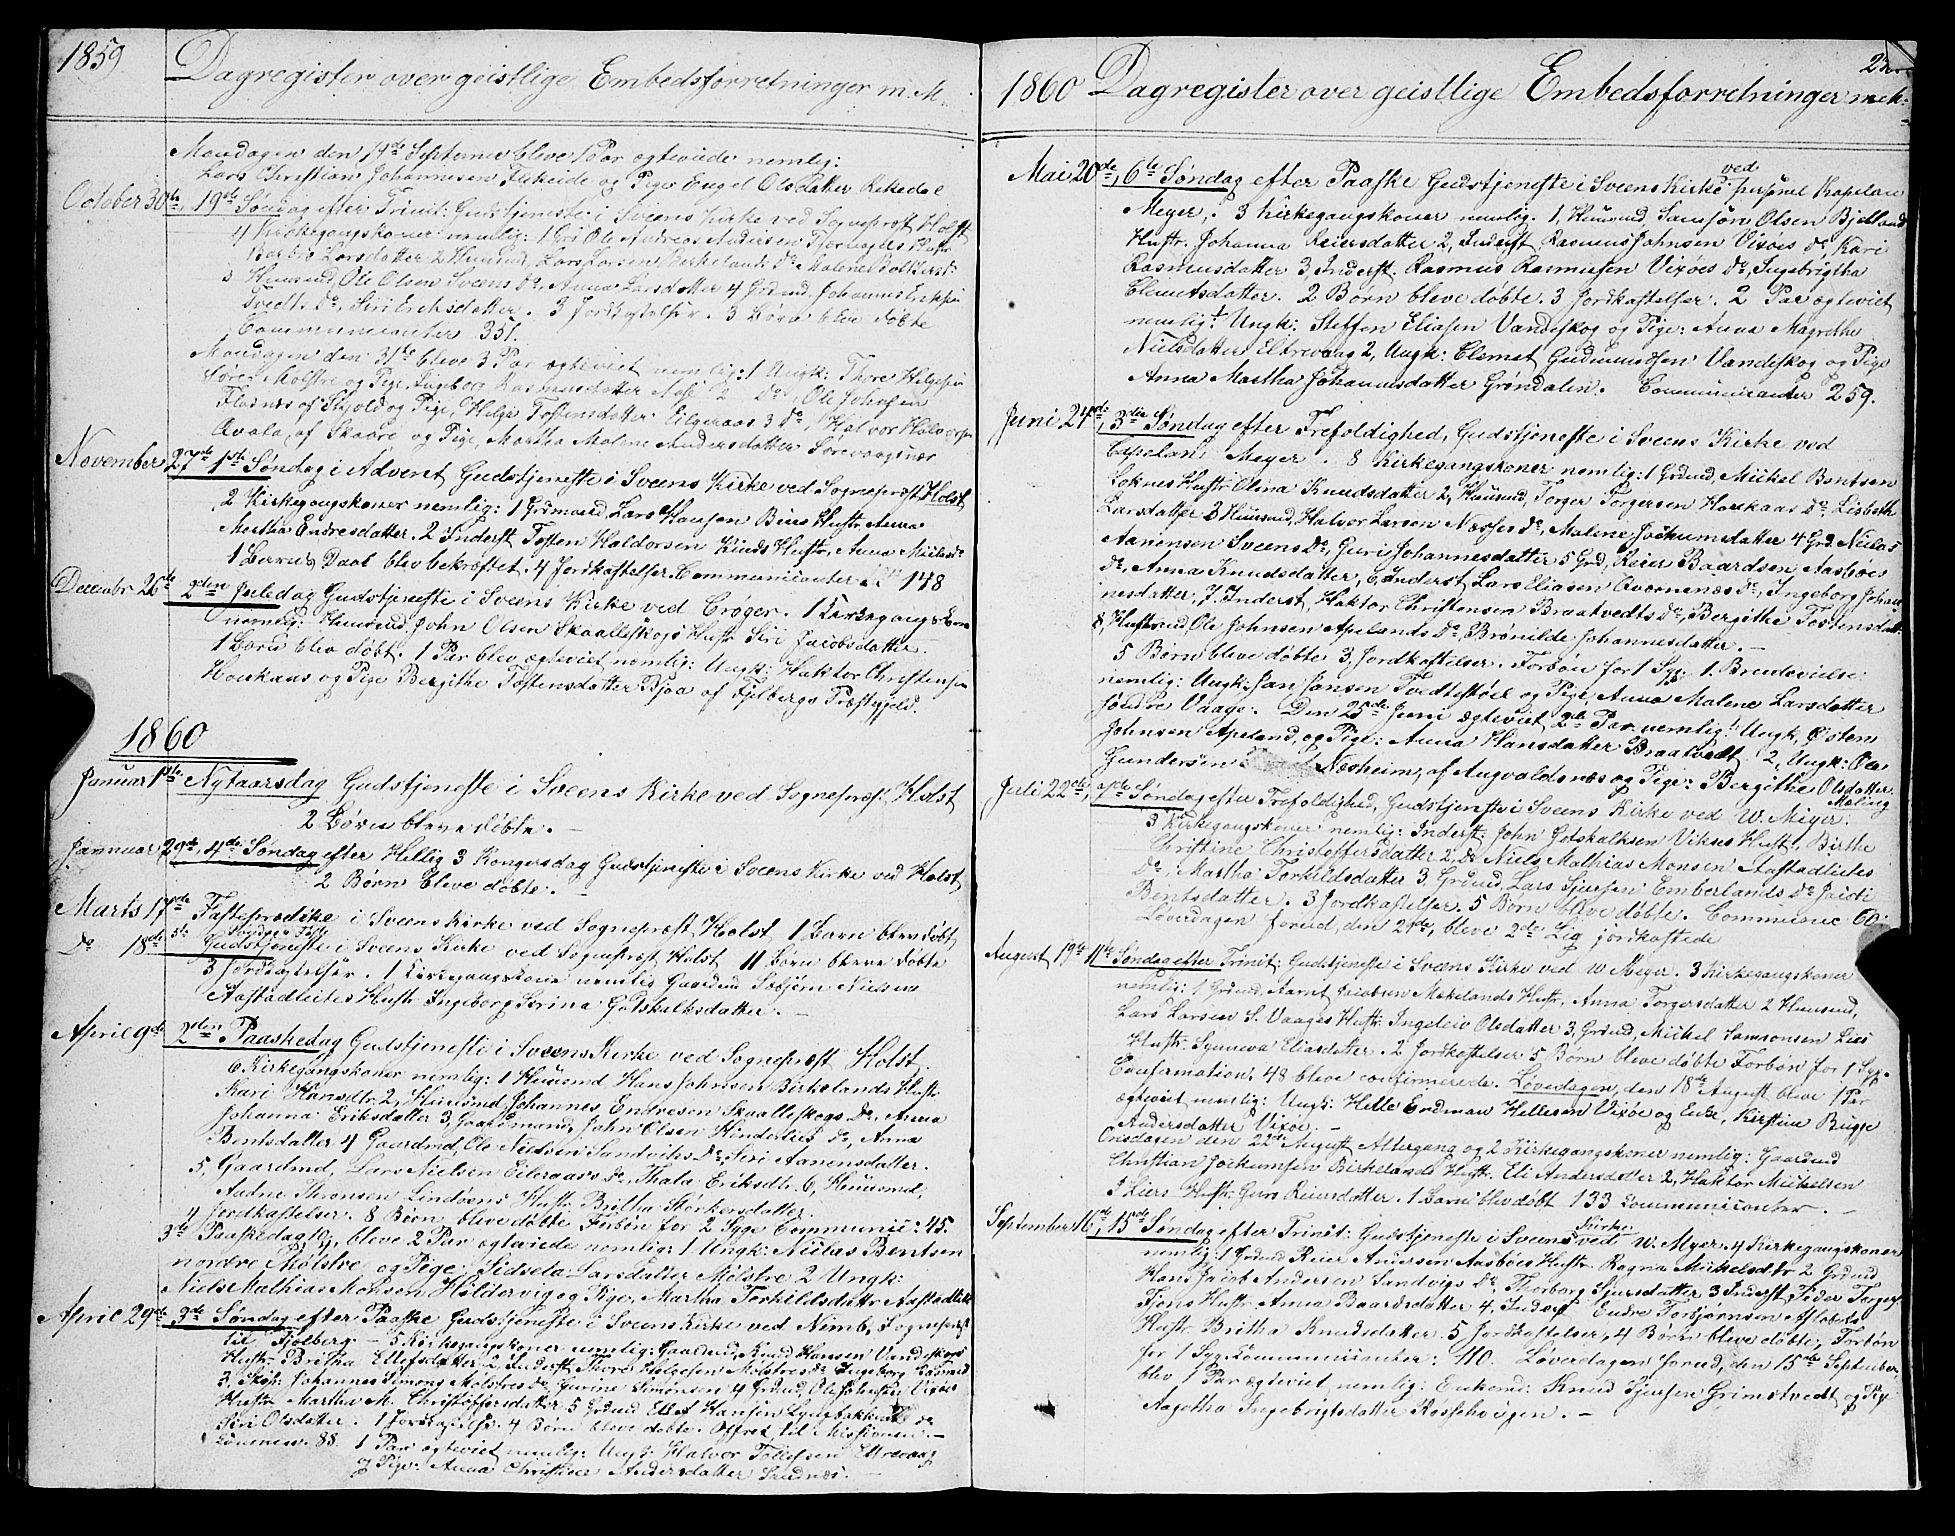 1859
Dagregister over geistlige Embedsforretninger m.M.
Mandagen den 19de September bleve 1 Par ægteviede nemlig:
Lars Christian Johannesen Flekeide og Pige Engel Olsdatter
October 30te, 19de Søndag efter Trinit: Gudstjeneste i Sveens Kirke ved Sognepræst Holst
4 Kirkegangskoner nemlig: 1 Grd. Ole Andreas Hustr.
Larsdatter 2 Huusmd. Lars Larsen Birkelands Do Malene
3 Huusmd. Ole Olsen Sveens Do, Anna Larsdatter 4 Gdmd. Johannes
Tvedt Do, Siri Eriksdatter. 3 Jordkastelser. 3 Børn bleve døbte
Communicanter 351.
Mandagen den 31te bleve 3 Par ægteviet nemlig: 1 Ungk: Thore Helgesen
Søre Mølstre og Pige, Ingeborg Rasmusdatter 2 Do, Ole Johnsen
Fladnæs af Skjold og Pige, Helga Tostensdatter Eilgeraas 3 Do, Halvor Halvorsen
Qvala, af Skaare og Pige, Martha Malene Andersdatter Sørevaagsnær
November 27de 1ste Søndag i Advent Gudstjeneste i Sveens Kirke ved Sognepræst Holst
2 Kirkegangskoner nemlig: 1 Grdmand Lars Hansen Hustr, Anna
Martha Endresdatter. 2 Inderst Tosten Haldorsen Hustr, Anna
1 Barns Daab blev bekræftet. 4 Jordkastelser. Communicanter 148
Decembr 26de 2den Juledag Gudstjeneste i Sveens Kirke ved Crøger. 1 Kirkegangskone
nemlig: Huusmd. John Olsen Skaalleskogs Hustr Siri Jacobsdatter.
1 Barn blev døbt. 1 Par blev ægteviet nemlig: Ungk: Haktor Christensen
Houkaas og Pige Bergithe Tostensdatter Bjoa af Fjelbergs Præstegjeld.
1860
Januar 1ste Nytaarsdag Gudstjeneste i Sveens Kirke ved Sognepræst Holst
2 Børn bleve døbte.
Januar 29de, 4de Søndag efter Hellig 3 Kongersdag Gudstjeneste i Sveens Kirke ved Holst
2 Børn bleve døbte.
Marts 17de Fasteprædike i Sveens Kirke ved Sognepræst Holst 1 Barn blev døbt
Do 18de 5te Søndag i Faste Gudstjeneste i Sveens Kirke ved Sognepræst Holst 11 Børn bleve døbte
3 Jordkastelser. 1 Kirkegangskone nemlig Gaardmd Sæbjørn Nielsen
Aastadleites Hustr Ingeborg Serina Gotskalksdatter.
April 9de 2den Paaskedag Gudstjeneste i Sveens Kirke ved Sognepræst Holst.
6 Kirkegangskoner nemlig: 1 Huusmd Hans Johnsen Birkelands Hustr
Kari Hansdtr 2, Huusmd Johannes Endresen Skaalleskogs Do, Anna
Johanna Eriksdatter 3, Gaardmand, John Olsen Hinderlies Do, Anna
Bentsdatter 4 Gaardmd, Ole Nielsen Sandviks Do, Siri Aanensdatter.
5, Gaardmd, Lars Nielsen Eileraas Do, Thala Eriksdtr. 6, Huusmd,
Aadne Thronsen Lindaas Hustr Britha Størkersdatter.
4 Jordkastelser. 8 Børn bleve døbte Forbøn for 2 Syge Communic: 45.
3de Paaskedag, bleve 2 Par ægteviede nemlig: 1 Ungk: Niclas Bentsen
nordre Mølstre og Pige: Sidsela Larsdatter Mølstre 2 Ungk:
Niels Mathias Monsen Hildervig og Pige, Martha Torkildsdatter Aastadleite
April 29de 3de Søndag efter Paaske Gudstjeneste i Sveens Kirke ved Nimb, Sognepræst
til Fjelberg. 5 Kirkegangskoner nemlig: Gaardmd, Knud Hansen Vandeskogs
Hustr Britha Ellefsdatter 2 Inderst Thore Helgesen Mølstre Do Ingeborg Rasmusd
3, Johannes Simons Mølstres Do, Gurine Simonsen 4 Grdmd, Ole Johnsen Vixøes
Hustr Martha M. Christoffersdatter 5 Grdmd Elert Hansen Lyngbakkens Do
Siri Olsdatter. 1 Jordkastelse. 4 Børn bleve døbte. Offret til Missionen.
Commun. 88. 1 Par ægteviet nemlig: Ungk: Halvor Tollefsen Eltrevaag
og Pige: Anna Christine Andersdatter Sandnæs.
1860 Dagregister over geistlige Embedsforretninger m.M.
Mai 20de, 6te Søndag efter Paaske Gudstjeneste i Sveens Kirke ved personel Kapelan
Meyer. 3 Kirkegangskoner nemlig. 1, Huusmd Samson Olsen Bjelland
Hustr. Johanna Reiersdatter 2, Inderst Rasmus Johnsen Vixøes Do, Kari
Rasmusdatter 3, Inderst. Rasmus Rasmusen Vixøes Do, Ingebrigtha
Clemetsdatter. 2 Børn bleve døbte. 3 Jordkastelser. 2 Par ægteviet
nemlig: 1 Ungk: Steffen Eliasen Vandeskog og Pige: Anna Magretha
Nielsdatter Eltrevaag 2, Ungk: Clemet Gudmundsen Vandeskog og Pige
Anna Martha Johannesdatter Grøndalen. Communicanter 259.
Juni 24de, 3die Søndag efter Trefoldighed, Gudstjeneste i Sveens Kirke ved
Capelan Meyer. 8 Kirkegangskoner nemlig: 1 Grdmd, Mickel Bentsen
Loknes Hustr Olina Knudsdatter 2, Huusmd, Torger Torgersen Houkaas Do, Lisbeth
Larsdatter 3 Huusmd, Halvor Larsen Næsses Do, Malene Jochumsdatter 4 Grd. Niclas
Aanensen Sveens Do, Guri Johannesdatter 5 Grd, Reier Baardsen Aasbøes
Do, Anna Knudsdatter, 6, Inderst Lars Eliasen Qvornenæs Do, Ingeborg Johan
nesdatter, 7. Inderst, Haktor Christensen Braatvedts Do, Bergithe Tostensdatt:
8, Huusmd, Ole Johnsen Apelands Do, Brønilde Johannesdatter.
5 Børn bleve døbte 3, Jordkastelser. Forbøn for 1 Syg. 1. Brudevielse:
nemlig: Ungk: Jan Jansen Tvedtestøel og Pige, Anna Malene Larsdatter
søndre Vaage. Den 25de Juni ægteviet 2de Par nemlig: 1 Ungk, Østen
Johnsen Apeland, og Pige: Anna Hansdatter Braatvedt 2, Ungk: Ole
Gundersen Næsheim, af Augvaldsnæs og Pige: Bergithe Olsdatter
Maling
Juli 22de, 7de Søndag efter Trefoldighed, Gudstjeneste i Sveens Kirke ved W. Meyer.
3 Kirkegangskoner nemlig: Inderst: John Gotskalksen Vikses Hustr. Birthe
Christine Christoffersdatter 2, Do Niels Mathias Monsen Aastadleites
Do, Martha Torkildsdatter 3, Grdmd, Lars Sjursen Emberlands Do
Bentsdatter. 3 Jordkastelser. 5 Børn bleve døbte. Communic 60.
Løverdagen forud, den 21de, bleve 2de Lig jordkastede
August 19de 11te Søndag efter Trinit: Gudstjeneste i Sveens Kirke ved W Meyer. 3 Kirkegangskoner
nemlig: 1 Grdmd, Aarnt Jacobsen Mækelands Hustr, Anna Torgersdatter 2 Huusmd,
Lars Larsen S. Vaages Hustr. Ingeleiv Olsdatter 3, Grdmd, Mickel Samsonsen Lies
Hustr. Synneva Eliasdatter. 2 Jordkastelser 5 Børn bleve døbte Forbøn for 1 Syg.
Confirmation. 48 bleve confirmerede. Løverdagen, den 18de August bleve 1 Par
ægteviet nemlig: Ungk: Helle Endman Hellesen Vixøe og Enke, Kirstine Bugge
Andersdatter Vixøe.
Onsdagen den 22de August Altergang og 2 Kirkegangskoner nemlig: Gaardmd
Christian Jockumsen Birkelands Hustr. Eli Andersdatter 2, Haktor Mickelsen
Liers Hustr. Guro Reiersdatter. 1 Barn blev døbt 133 Communicanter.
September 16de, 15de Søndag efter Trinit: Gudstjeneste i Sveens Kirke ved W. Myer. 4 Kirkegangskoner
nemlig: 1 Grdmd Reier Andersen Aasbøes Hustr. Ragna Mickelsdtr 2 Grdmd
Hans Jacob Andersen Sandvigs Do, Thorborg Sjursdatter 3 Inderst, Peder
Hustr Anna Baardsdatter 4, Inderst Endre Torbjørnsen
Hustr Britha Knudsdatter. 5 Jordkastelser, 4 Børn bleve døbte, Forbøn
for 1 Syg. Communicanter: 110. Løverdagen forud, den 15de September,
blev 1 Par ægteviet nemlig: Enkemd: Knud Sjursen Grimstvedt og Pige
Aagotha Ingebrigtsdatter Rossehougen.